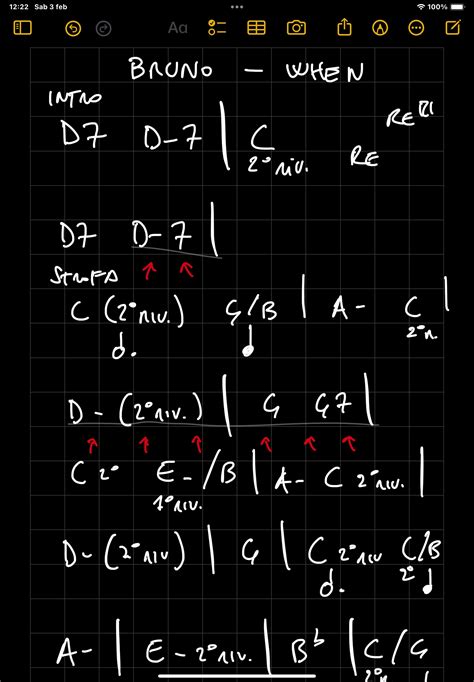 12:22 Sab 3 feb
100%
Aa
BRUNO – WHEN
INTRO
D7 D-7 | C RE
2° niv. RE
D7 D-7 |
STROFA
C (2° niv.) G/B | A- C |
d. 2° n.
D- (2° niv.) | G G7 |
C 2° E-/B | A- C 2° niv. |
1° niv.
D- (2° niv) | G | C 2° niv C/B
d. 2°
A- | E- 2° niv. | Bb | C/G
2° n